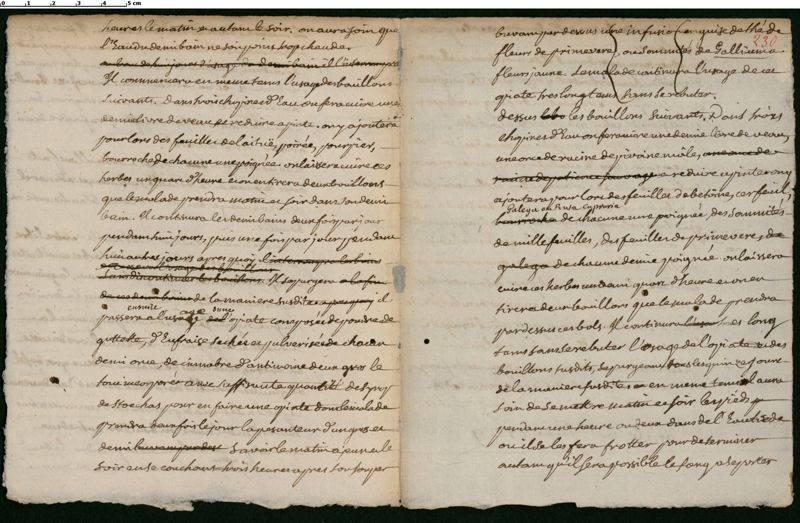 heures le matin et autant le soir. on aura soin que
l'eau du demi bain ne soit point trop chaude
Il commencera en meme tems l'usage des bouillons
suivants. Dans trois chopines d'eau on fera cuire une
demie livre de veau, et reduire a pinte. on y ajoutera
pour lors des feuilles de laitue, poirée, pourpier,
bourroche de chacune une poignée. on laissera cuire ces
herbes un quart d'heure et on en tirera deux bouillons
que le malade prendra matin et soir dans son demi
bain. Il continura les demi bains deux fois par jour
pendant huit jours, puis une fois par jour pendant
huit autres jours apres quoi il
les bouillons. Il se purgera
de la maniere susdite il
passera ensuite a l'usage d'une opiate composée de poudre de
guttete, d'Eufraise sechées et pulverisées de chacun
demi once, de cinnabre d'antimoine deux gros le
tout incorporé avec suffisante quantité de syrop
de stoechas pour en faire une opiate dont le malade
prendra deux fois le jour la pesanteur d'un gros et
demi savoir le matin a jeun et le
soir en se couchant trois heures apres son souper
230
buvant par dessus une infusion en guise de thé de
fleurs de primevere, ou sommités de Gallium a
fleurs jaune. Le malade continura l'usage de cet
opiate tres longtems sans se rebuter.
dessus les bouillons suivants. Dans trois
chopines d'Eau on fera cuire une demie livre de veau,
une once de racine de pivoine mâle, une once de
racine de patience sauvage a reduire a pinte on y
ajoutera pour lors des feuilles de betoine, cerfeuil,
galega ou Rusa Cypria
bourroche de chacune une poignée, des sommités
de millefeuilles, des feuilles de primevere, de
galega de chacune demie poignée. on laissera
cuire ces herbes un demi quart d'heure et on en
tirera deux bouillons que le malade prendra
par dessus ces bols. Il continura long
tems sans se rebuter l'usage de l'opiate et des
bouillons susdits, se purgeant tous les quinze jours
de la maniere susdite. en meme tems il aura
soin de se mettre matin et soir les pieds
pendant une heure ou deux dans de l'Eau tiede
ou il se les fera frotter pour determiner
autant qu'il sera possible le sang a se porter